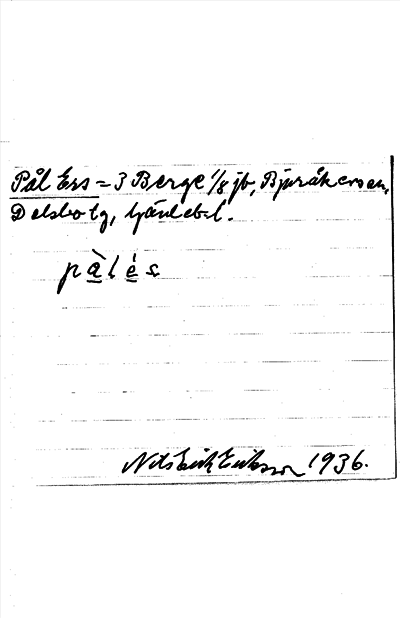 Pål Ers = 3 Berge 1/8 jb, Bjuråker sn,
Delsbo tg, Gävlebl.
pàlés
Nils Erik Eriksson 1936.